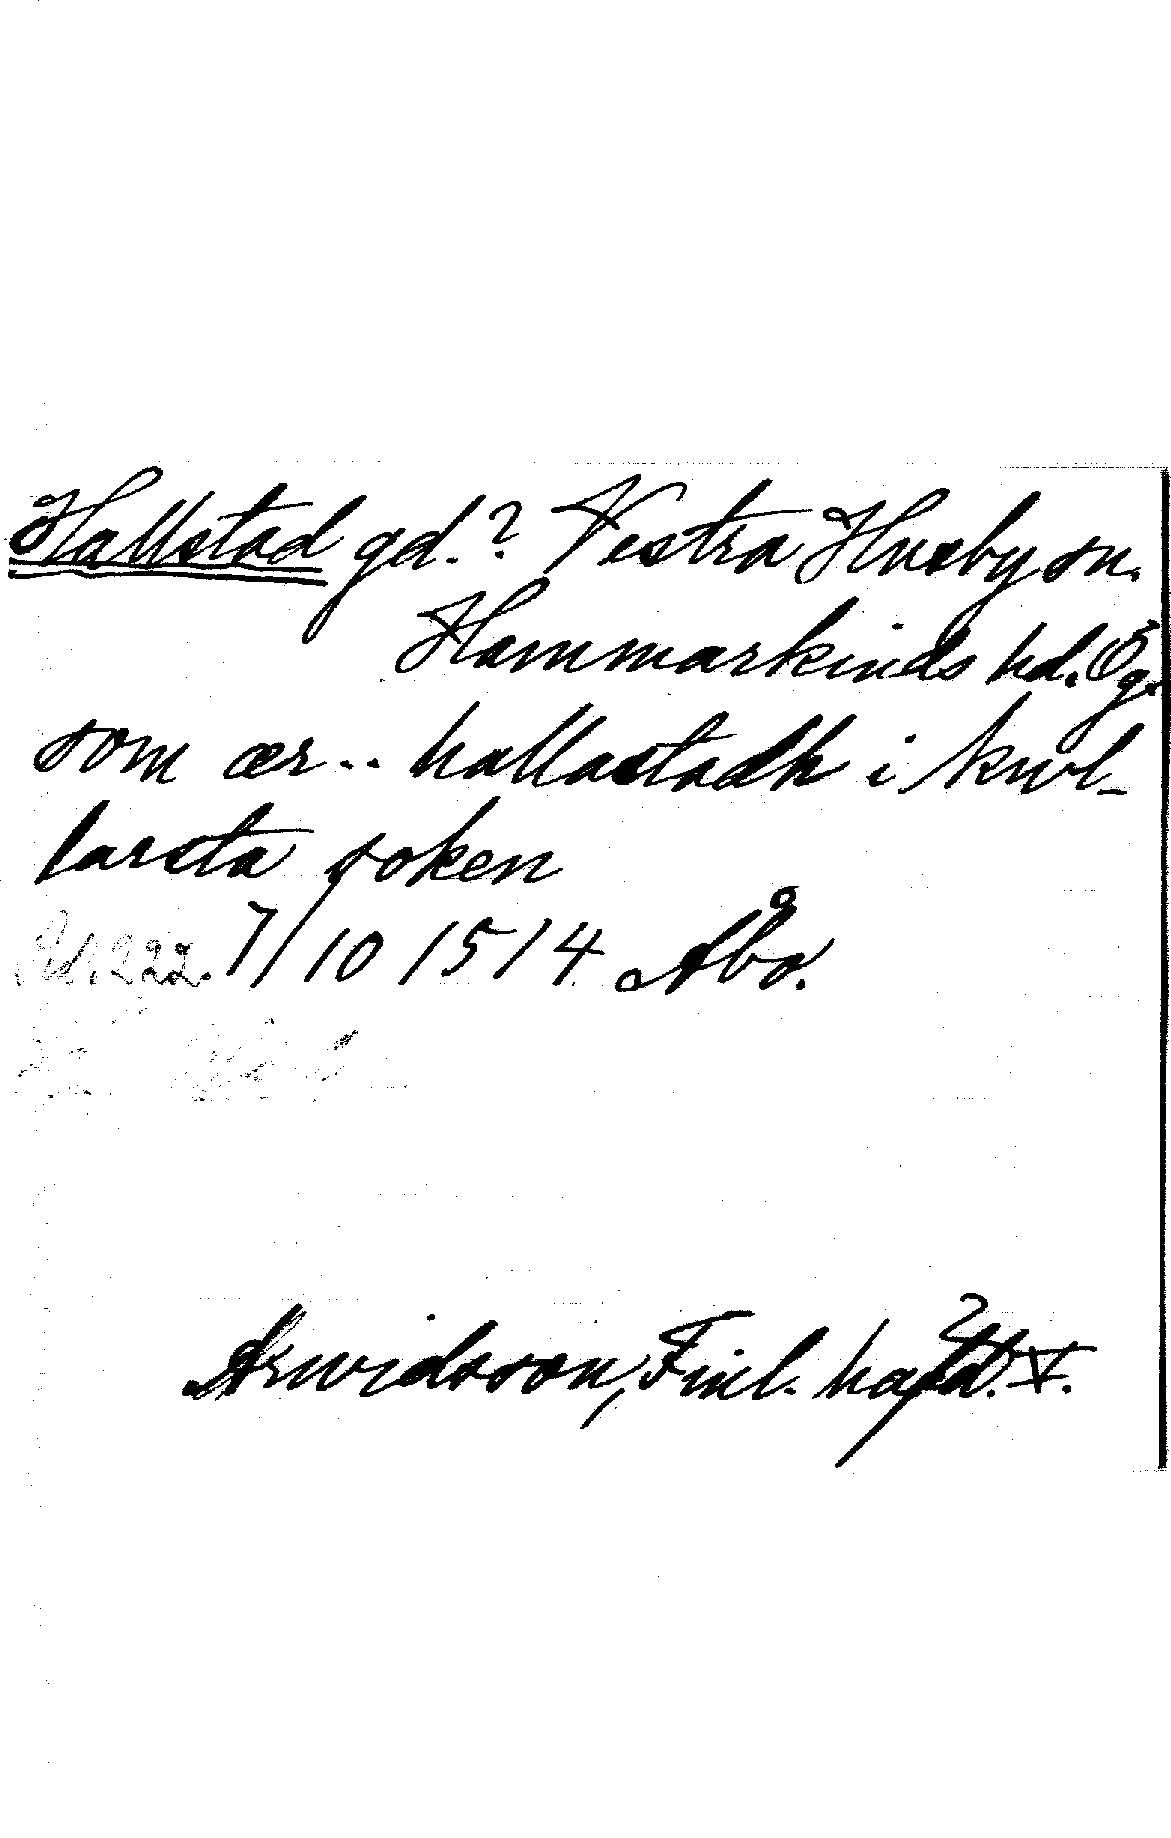 Hallstad gd.? Vestra Husby sn.
Hammarkinds hd. Ög.
som ær .. hallastadh i kwl-
larsta soken
222. 7/10 1514 Åbo.
Arwidsson, Finl. häfd. V.